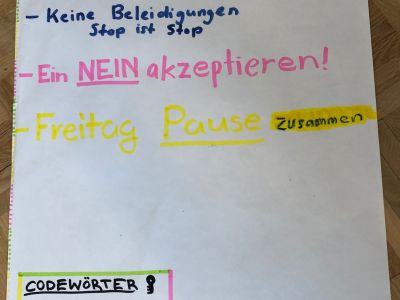 - Keine Beleidigungen
Stop ist Stop
- Ein NEIN akzeptieren!
- Freitag Pause zusammen
CODEWÖRTER !